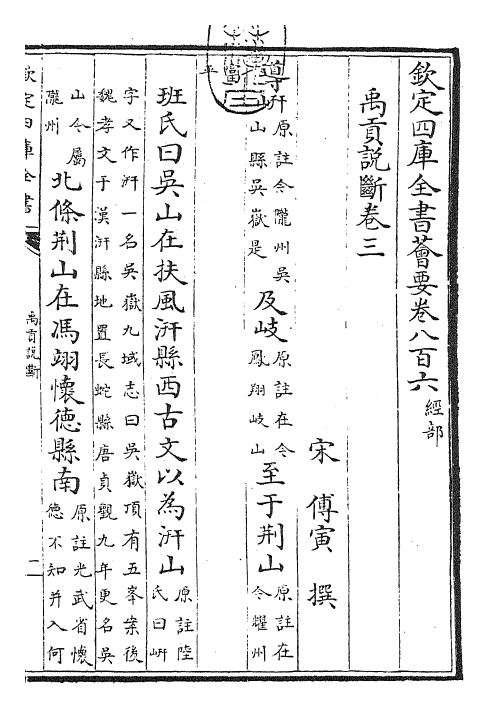 欽定四庫全書薈要卷八百六 經部
禹貢說斷卷三
宋 傅寅 撰
導汧原註今隴州吳山縣吳嶽是及岐原註在今鳳翔岐山至于荆山原註在今耀州
富平
班氏曰吳山在扶風汧縣西古文以為汧山原註陸氏曰岍
字又作汧一名吳嶽九域志曰吳嶽頂有五峯案後
魏孝文于漢汧縣地置長蛇縣唐貞觀九年更名吳
山今屬隴州北條荆山在馮翊懷德縣南原註光武省懷德不知并入何
欽定四庫全書
禹貢說斷